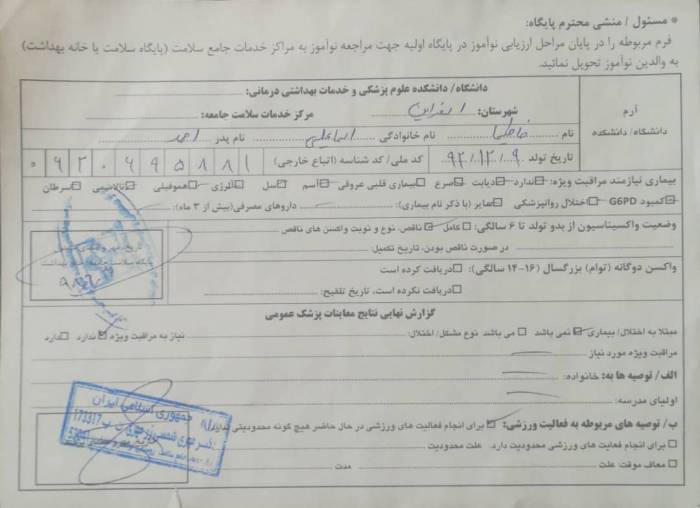 * مسئول / منشی محترم پایگاه:
فرم مربوطه را در پایان مراحل ارزیابی نوآموز در پایگاه اولیه جهت مراجعه نوآموز به مراکز خدمات جامع سلامت (پایگاه سلامت یا خانه بهداشت)
به والدین نوآموز تحویل نمائید.
آرم
دانشگاه/ دانشکده
دانشگاه/ دانشکده علوم پزشکی و خدمات بهداشتی درمانی:
شهرستان: اسفراین مرکز خدمات سلامت جامعه:
نام فاطمه نام خانوادگی اسماعیلی نام پدر احمد
تاریخ تولد ۹۲/۱۲/۰۹ کد ملی/ کد شناسه (اتباع خارجی)
بیماری نیازمند مراقبت ویژه: ندارد دیابت صرع بیماری قلبی عروقی آسم سل آلرژی هموفیلی تالاسمی سرطان
کمبود G6PD اختلال روانپزشکی سایر (با ذکر نام بیماری): داروهای مصرفی(بیش از ۳ ماه):
وضعیت واکسیناسیون از بدو تولد تا ۶ سالگی: کامل ناقص، نوع و نوبت واکسن های ناقص
در صورت ناقص بودن، تاریخ تکمیل:
واکسن دوگانه (توام) بزرگسال (۱۶-۱۴ سالگی): دریافت کرده است
دریافت نکرده است، تاریخ تلقیح:
گزارش نهایی نتایج معاینات پزشک عمومی
مبتلا به اختلال/ بیماری نمی باشد می باشد نوع مشکل/ اختلال: نیاز به مراقبت ویژه ندارد دارد
مراقبت ویژه مورد نیاز
الف/ توصیه ها به: خانواده:
اولیای مدرسه:
ب/ توصیه های مربوطه به فعالیت ورزشی: برای انجام فعالیت های ورزشی در حال حاضر هیچ گونه محدودیتی ندارد
برای انجام فعالیت های ورزشی محدودیت دارد. علت محدودیت
معاف موقت: علت مدت
جمهوری اسلامی ایران